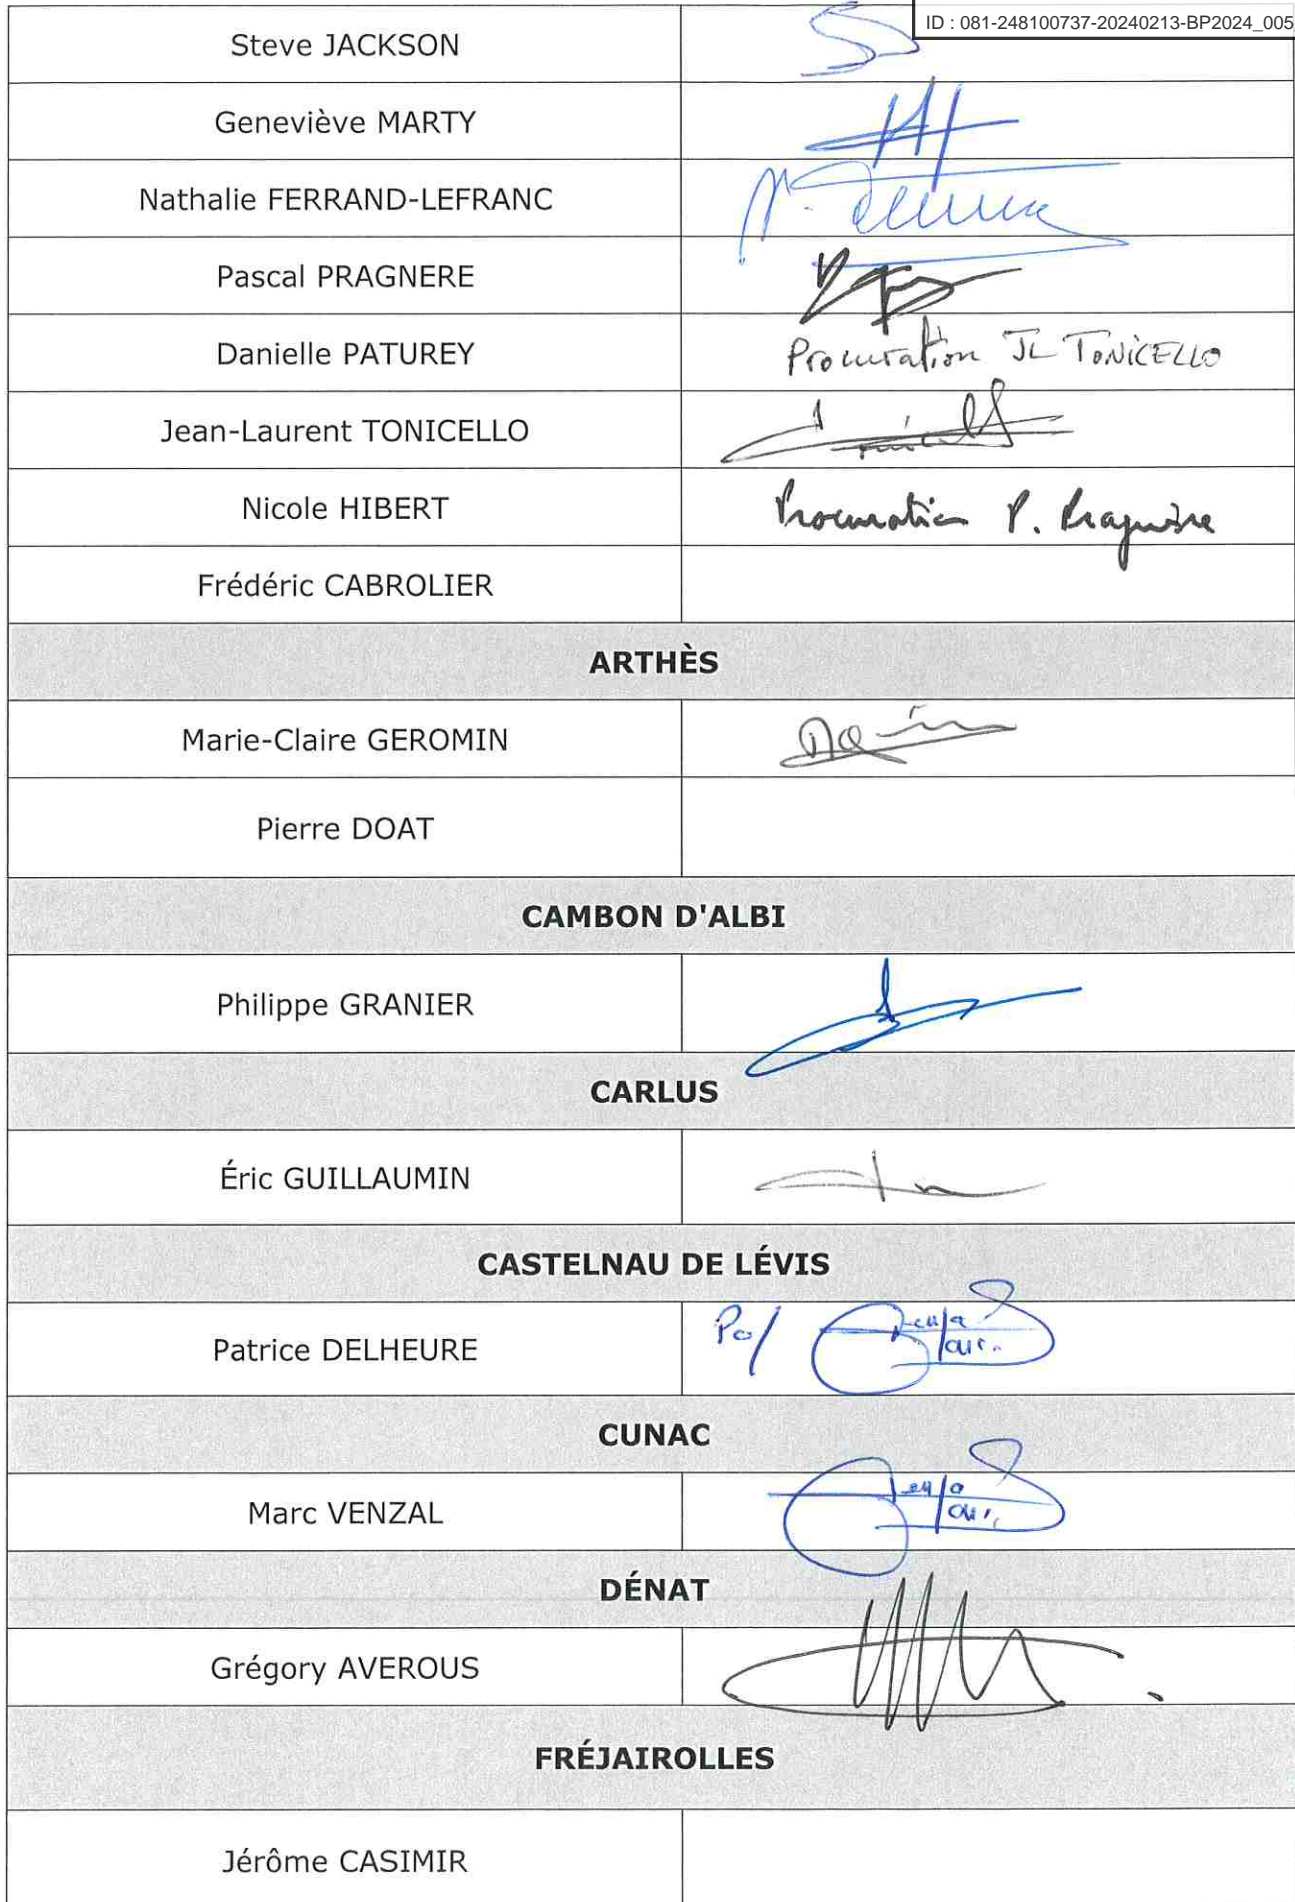 ID : 081-248100737-20240213-BP2024_005
Steve JACKSON
Geneviève MARTY
Nathalie FERRAND-LEFRANC
Pascal PRAGNERE
Danielle PATUREY Procuration JL TONICELLO
Jean-Laurent TONICELLO
Nicole HIBERT Procuration P. Pragnère
Frédéric CABROLIER
ARTHÈS
Marie-Claire GEROMIN
Pierre DOAT
CAMBON D'ALBI
Philippe GRANIER
CARLUS
Éric GUILLAUMIN
CASTELNAU DE LÉVIS
Patrice DELHEURE
CUNAC
Marc VENZAL
DÉNAT
Grégory AVEROUS
FRÉJAIROLLES
Jérôme CASIMIR